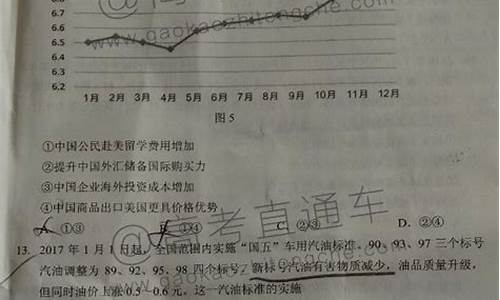 6.8
6.7
6.6
6.5
6.4
6.3
6.2
1月 2月 3月 4月 5月 6月 7月 8月 9月 10月 11月 12月
图 5
①中国公民赴美留学费用增加
②提升中国外汇储备国际购买力
③中国企业海外投资成本增加
④中国商品出口美国更具价格优势
A. ①③ ①④ C. ②③ D. ②④
13. 2017 年 1 月 1 日起，全国范围内实施“国五”车用汽油标准。90、93、97 三个标号
汽油调整为 89、92、95、98 四个标号，新标号汽油有害物质减少，油品质量升级，
但同时油价上涨 0.5—0.6 元。这一汽油标准的实施
www.gaokaozhitongche.com
@高考直通车